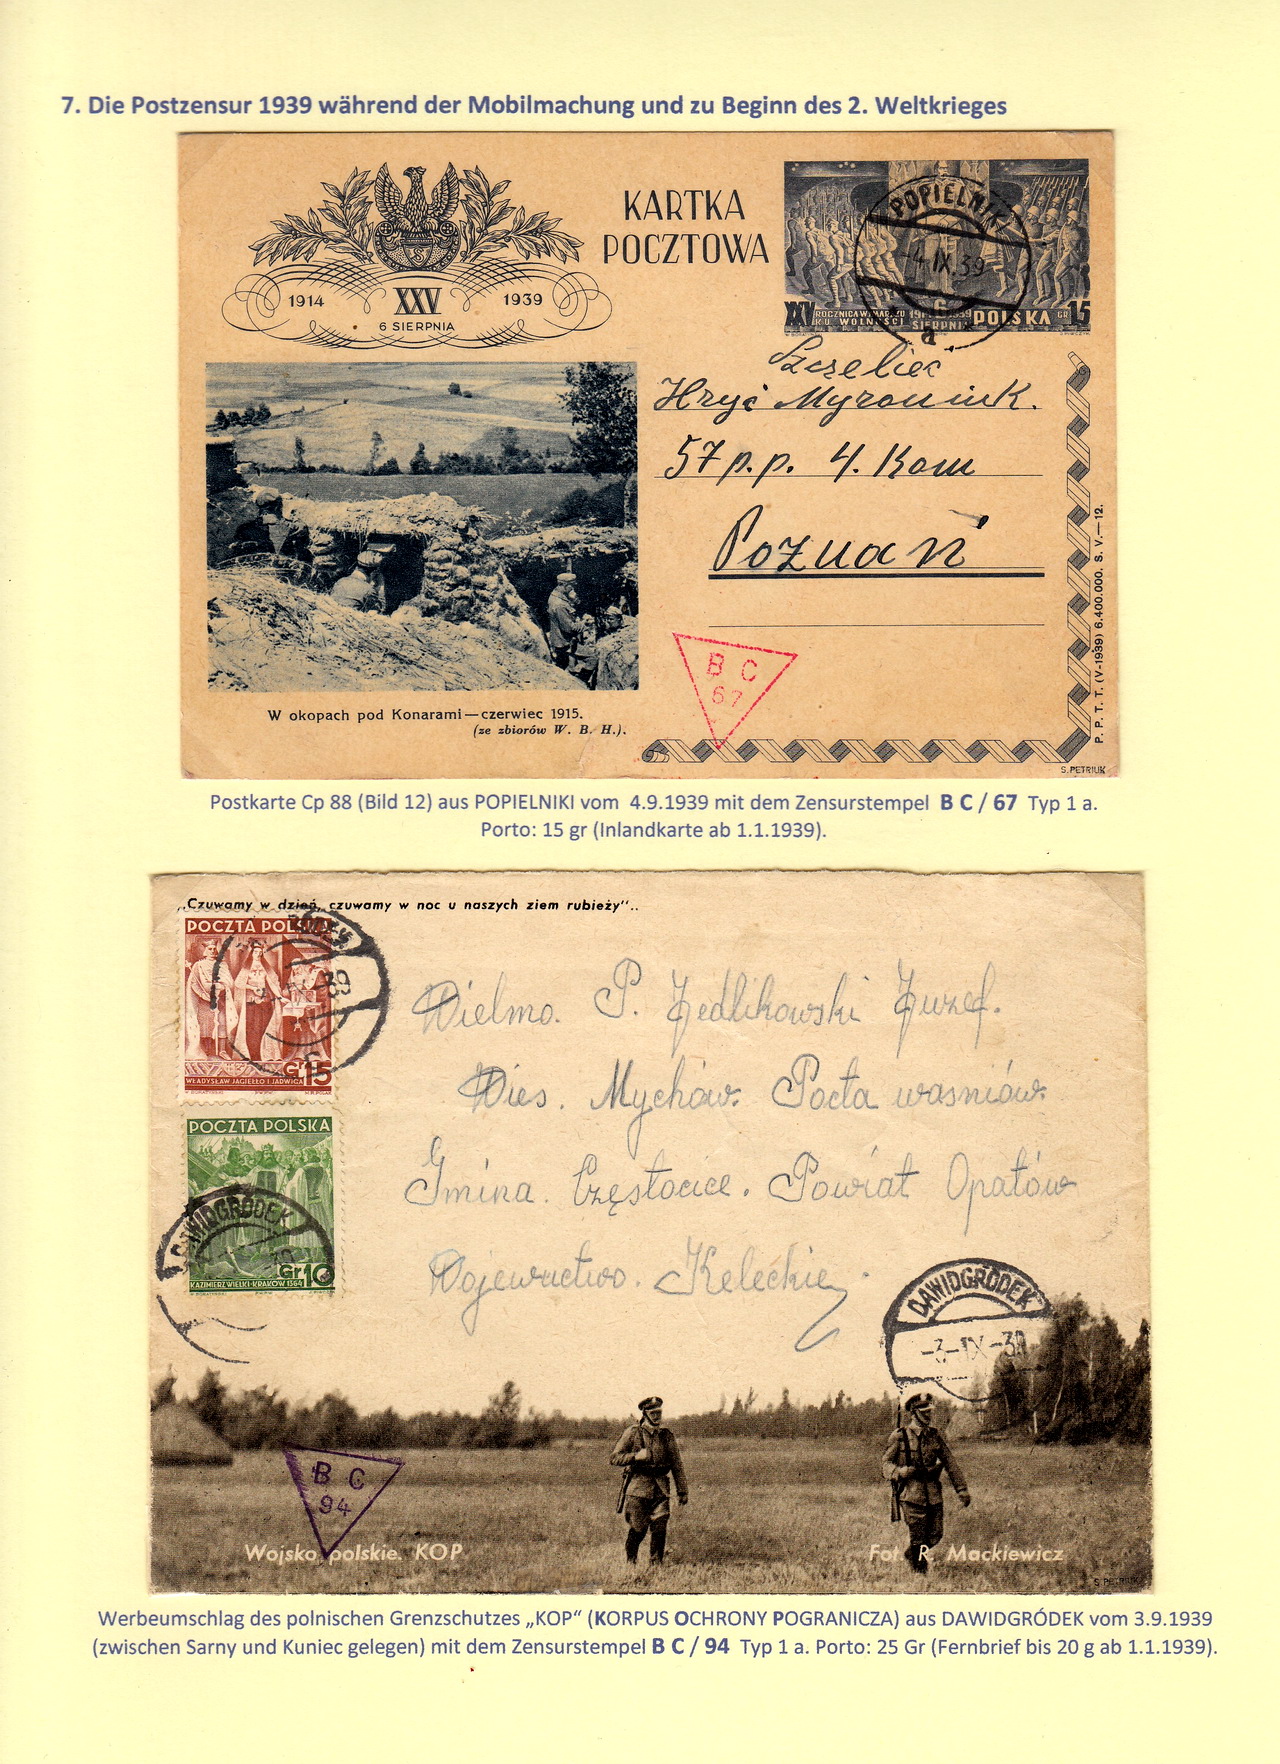 7. Die Postzensur 1939 während der Mobilmachung und zu Beginn des 2. Weltkrieges
KARTKA
POCZTOWA
1914 XXV 1939
6 SIERPNIA
POPIELNIKI
-4.IX.39
a
XXV ROCZNICA WYMARSZU
KU WOLNOŚCI
SIERPNIA
POLSKA GR 15
Szczeliec
Hryć Myroniuk.
57 p.p. 4. Kom
Poznań
B C
67
W okopach pod Konarami—czerwiec 1915.
(ze zbiorów W. B. H.).
P. P. T. T. (V-1939) 6.400.000. S. V.—12.
S. PETRIUK
Postkarte Cp 88 (Bild 12) aus POPIELNIKI vom 4.9.1939 mit dem Zensurstempel B C / 67 Typ 1 a.
Porto: 15 gr (Inlandkarte ab 1.1.1939).
„Czuwamy w dzień, czuwamy w noc u naszych ziem rubieży"..
POCZTA POLSKA
39
Gr 15
WŁADYSŁAW JAGIEŁŁO I JADWIGA
POCZTA POLSKA
DAWIDGRÓDEK
Gr 10
KAZIMIERZ WIELKI-KRAKÓW 1364
Wielmo. P. Jedlikowski Juzef.
Wies. Mychów. Pocta wasniów.
Gmina. Częstocice. Powiat Opatów
Wojewuctwo. Keleckie.
DAWIDGRÓDEK
-3-IX-39
B C
94
Wojsko polskie. KOP
Fot. R. Mackiewicz
S. PETRIUK
Werbeumschlag des polnischen Grenzschutzes „KOP“ (KORPUS OCHRONY POGRANICZA) aus DAWIDGRÓDEK vom 3.9.1939
(zwischen Sarny und Kuniec gelegen) mit dem Zensurstempel B C / 94 Typ 1 a. Porto: 25 Gr (Fernbrief bis 20 g ab 1.1.1939).